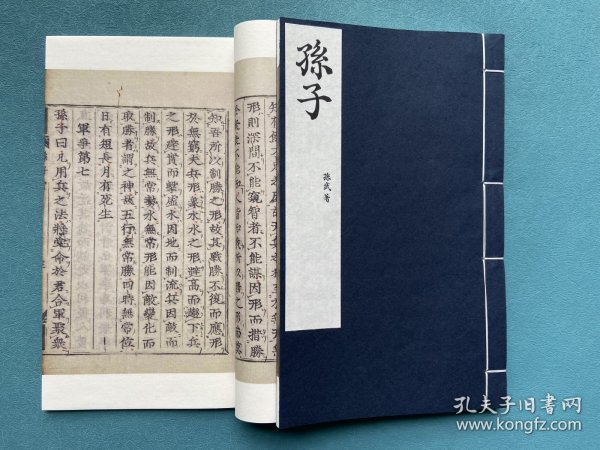 孫子
孫武 著
形則深間不能窺智者不能謀因形而措勝
知吾所以制勝之形故其戰勝不復而應形
於無窮夫兵形象水水之形避高而趨下兵
之形避實而擊虛水因地而制流兵因敵而
制勝故兵無常勢水無常形能因敵變化而
取勝者謂之神故五行無常勝四時無常位
日有短長月有死生
軍爭第七
孫子曰凡用兵之法將受命於君合軍聚衆
孔夫子旧书网
www.kongfz.com